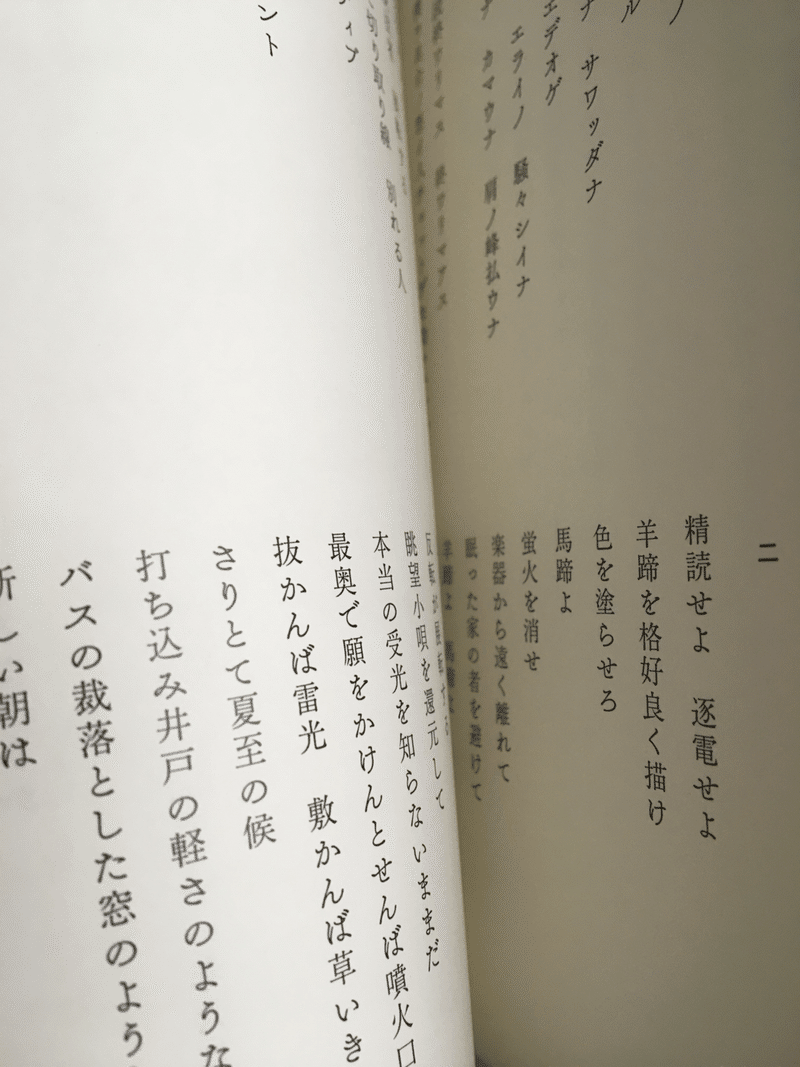 ル
ナ　サワッダナ
エデオゲ
エライノ　騒々シイナ
ナ　カマウナ　肩ノ峰払ウナ
終ワリマス　終ワリマアス
二
精読せよ　逐電せよ
羊蹄を格好良く描け
色を塗らせろ
馬蹄よ
蛍火を消せ
楽器から遠く離れて
眠った家の者を避けて
羊蹄よ　馬蹄よ
切り取り線　別れる人
ティブ
ント
眺望小唄を還元して
本当の受光を知らないままだ
最奥で願をかけんとせんば噴火口
抜かんば雷光　敷かんば草いき
さりとて夏至の候
打ち込み井戸の軽さのような
バスの裁落とした窓のよう
新しい朝は